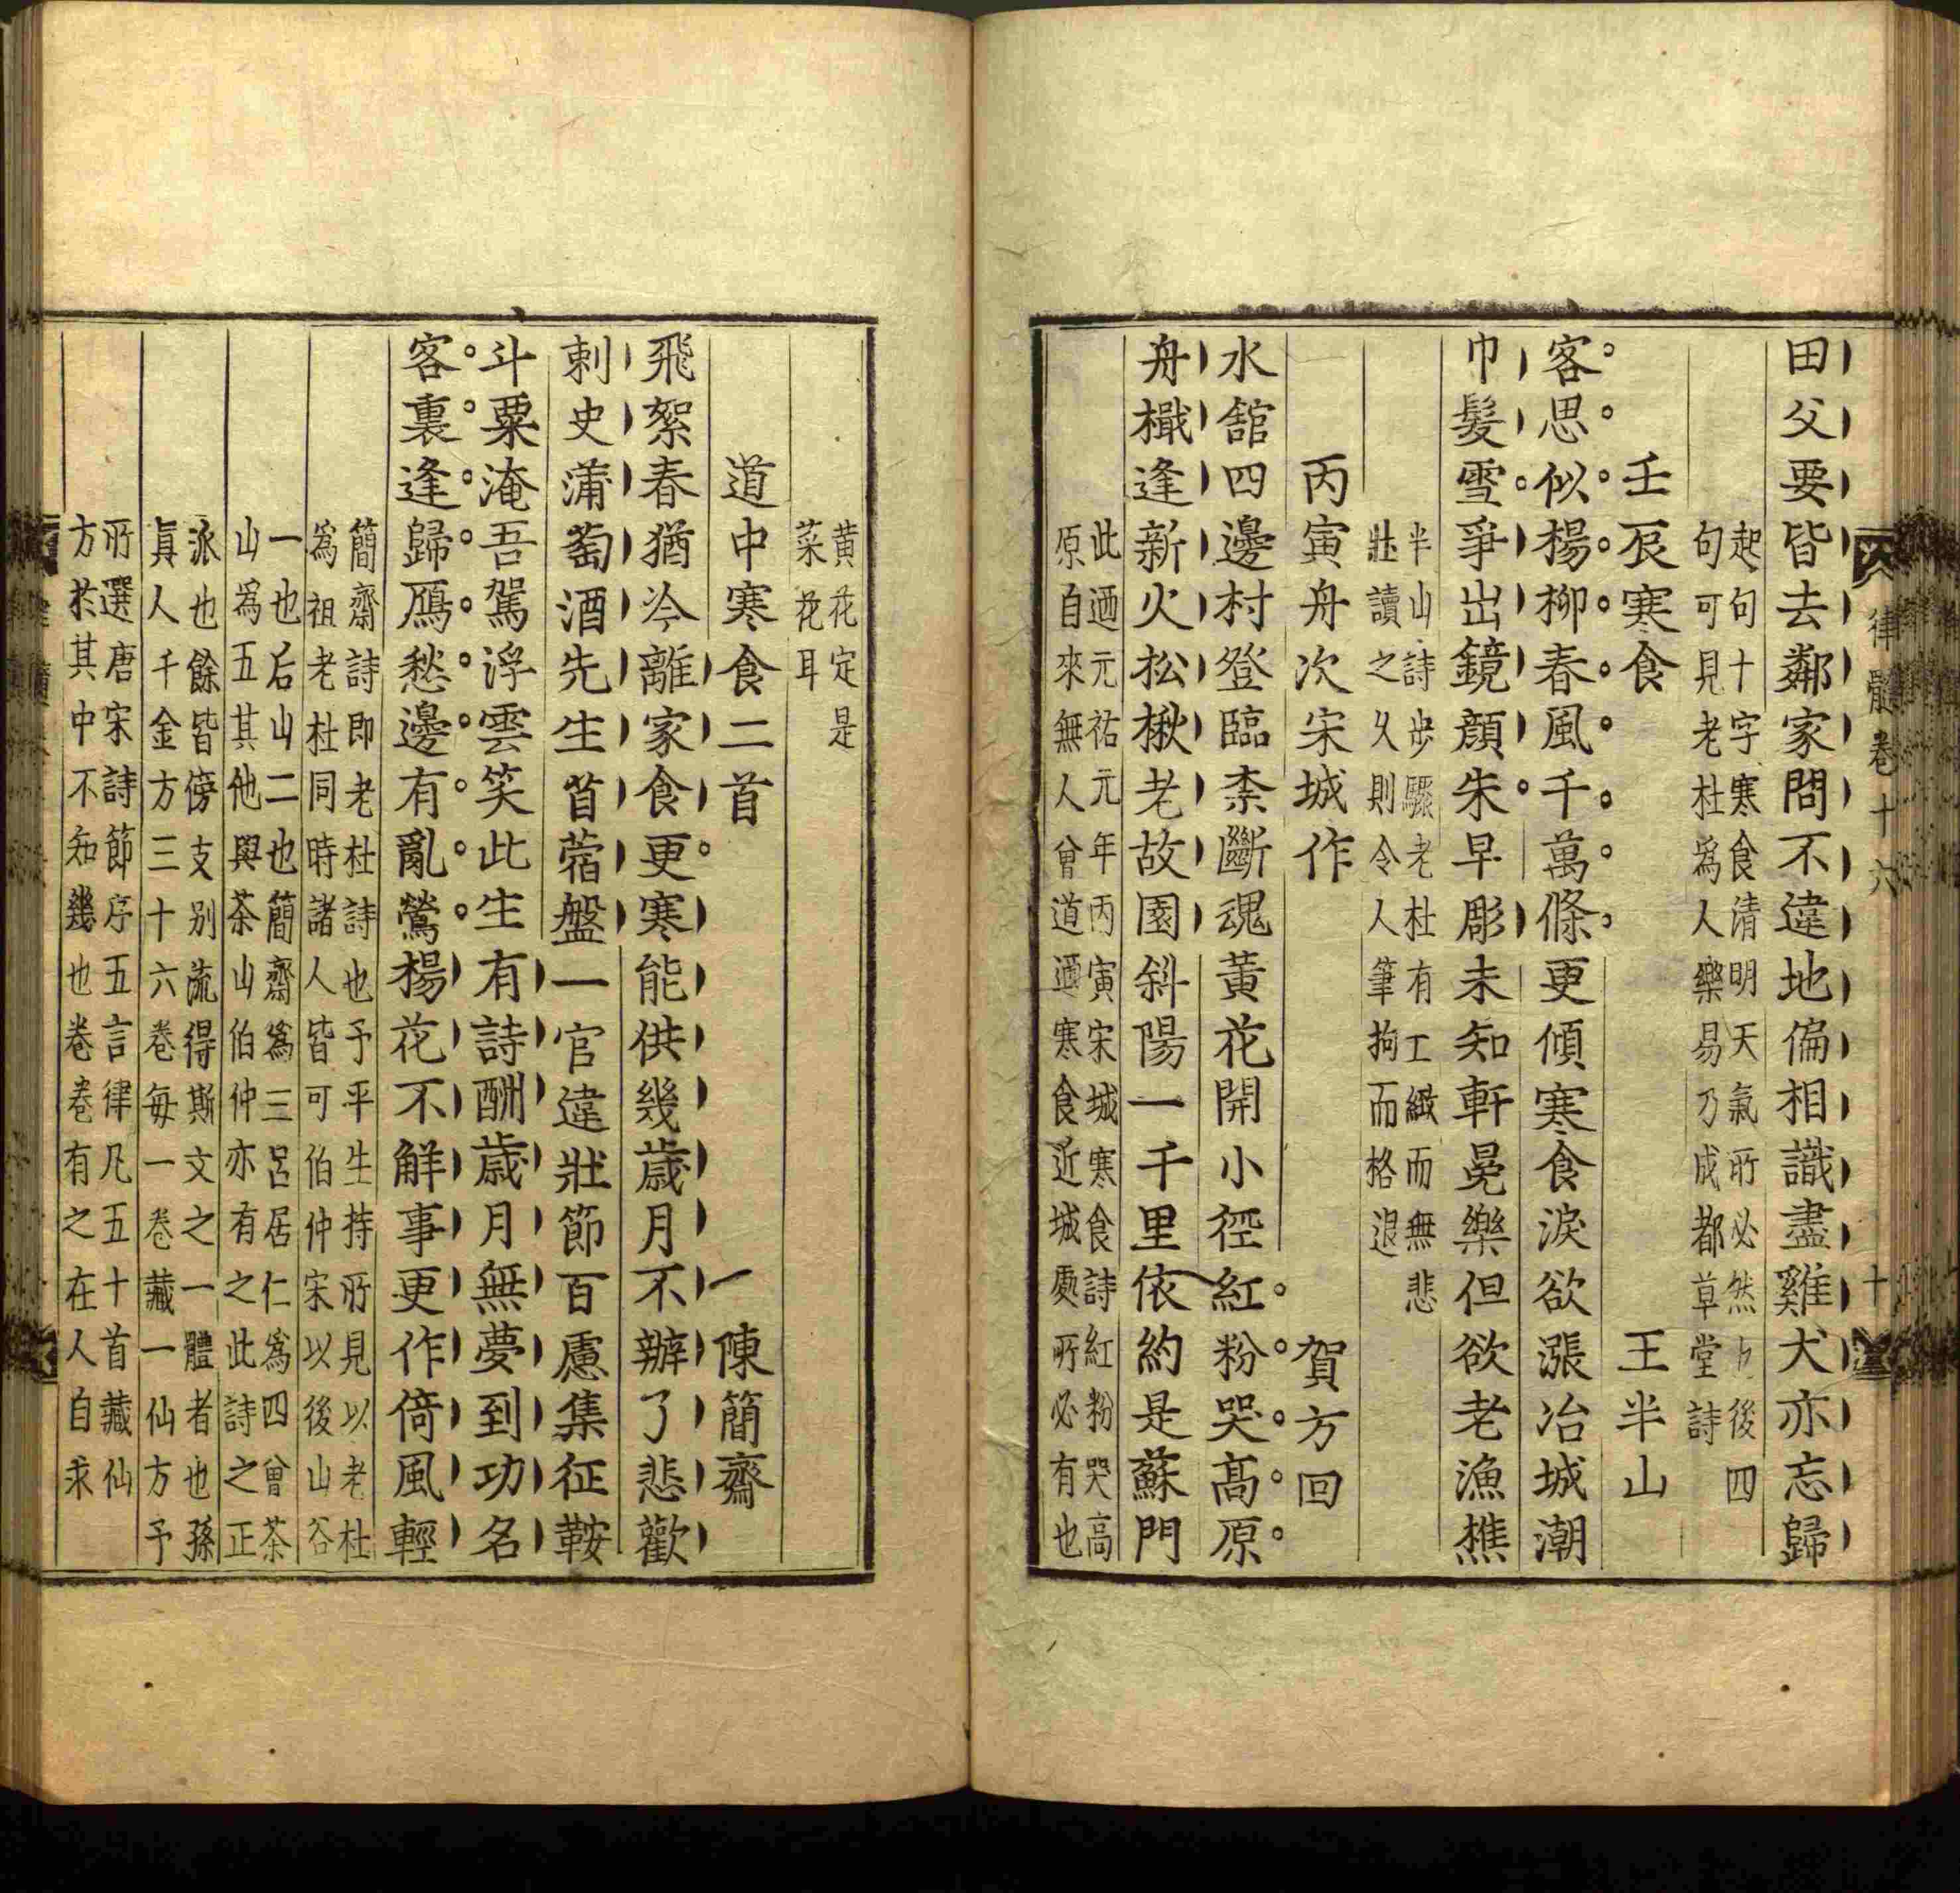 律髓卷十六
十
田父要皆去鄰家問不違地偏相識盡雞犬亦忘歸
起句十字寒食清明天氣所必然 後四
句可見老杜爲人樂易乃成都草堂詩
壬辰寒食
王半山
客思似楊柳春風千萬條更傾寒食淚欲漲冶城潮
巾髮雪爭出鏡顏朱早彫未知軒冕樂但欲老漁樵
半山詩步驟老杜有工緻而無悲
壯讀之久則令人筆拘而格退
丙寅舟次宋城作
賀方回
水舘四邊村登臨柰斷魂黃花開小徑紅粉哭高原
舟檝逢新火松楸老故園斜陽一千里依約是蘇門
此迺元祐元年丙寅宋城寒食詩紅粉哭高
原自來無人曾道過寒食近城處所必有也
黄花定是
菜花耳
道中寒食二首
陳簡齋
飛絮春猶冷離家食更寒能供幾歲月不辦了悲歡
刺史蒲萄酒先生苜蓿盤一官違壯節百慮集征鞍
斗粟淹吾駕浮雲笑此生有詩酬歲月無夢到功名
客裏逢歸鴈愁邊有亂鶯楊花不解事更作倚風輕
簡齋詩即老杜詩也予平生持所見以老杜
爲祖老杜同時諸人皆可伯仲宋以後山谷
一也后山二也簡齋爲三呂居仁爲四曾茶
山爲五其他與茶山伯仲亦有之此詩之正
泒也餘皆傍支别流得斯文之一體者也孫
真人千金方三十六卷每一卷藏一仙方予
所選唐宋詩節序五言律凡五十首藏仙
方於其中不知幾也卷卷有之在人自求